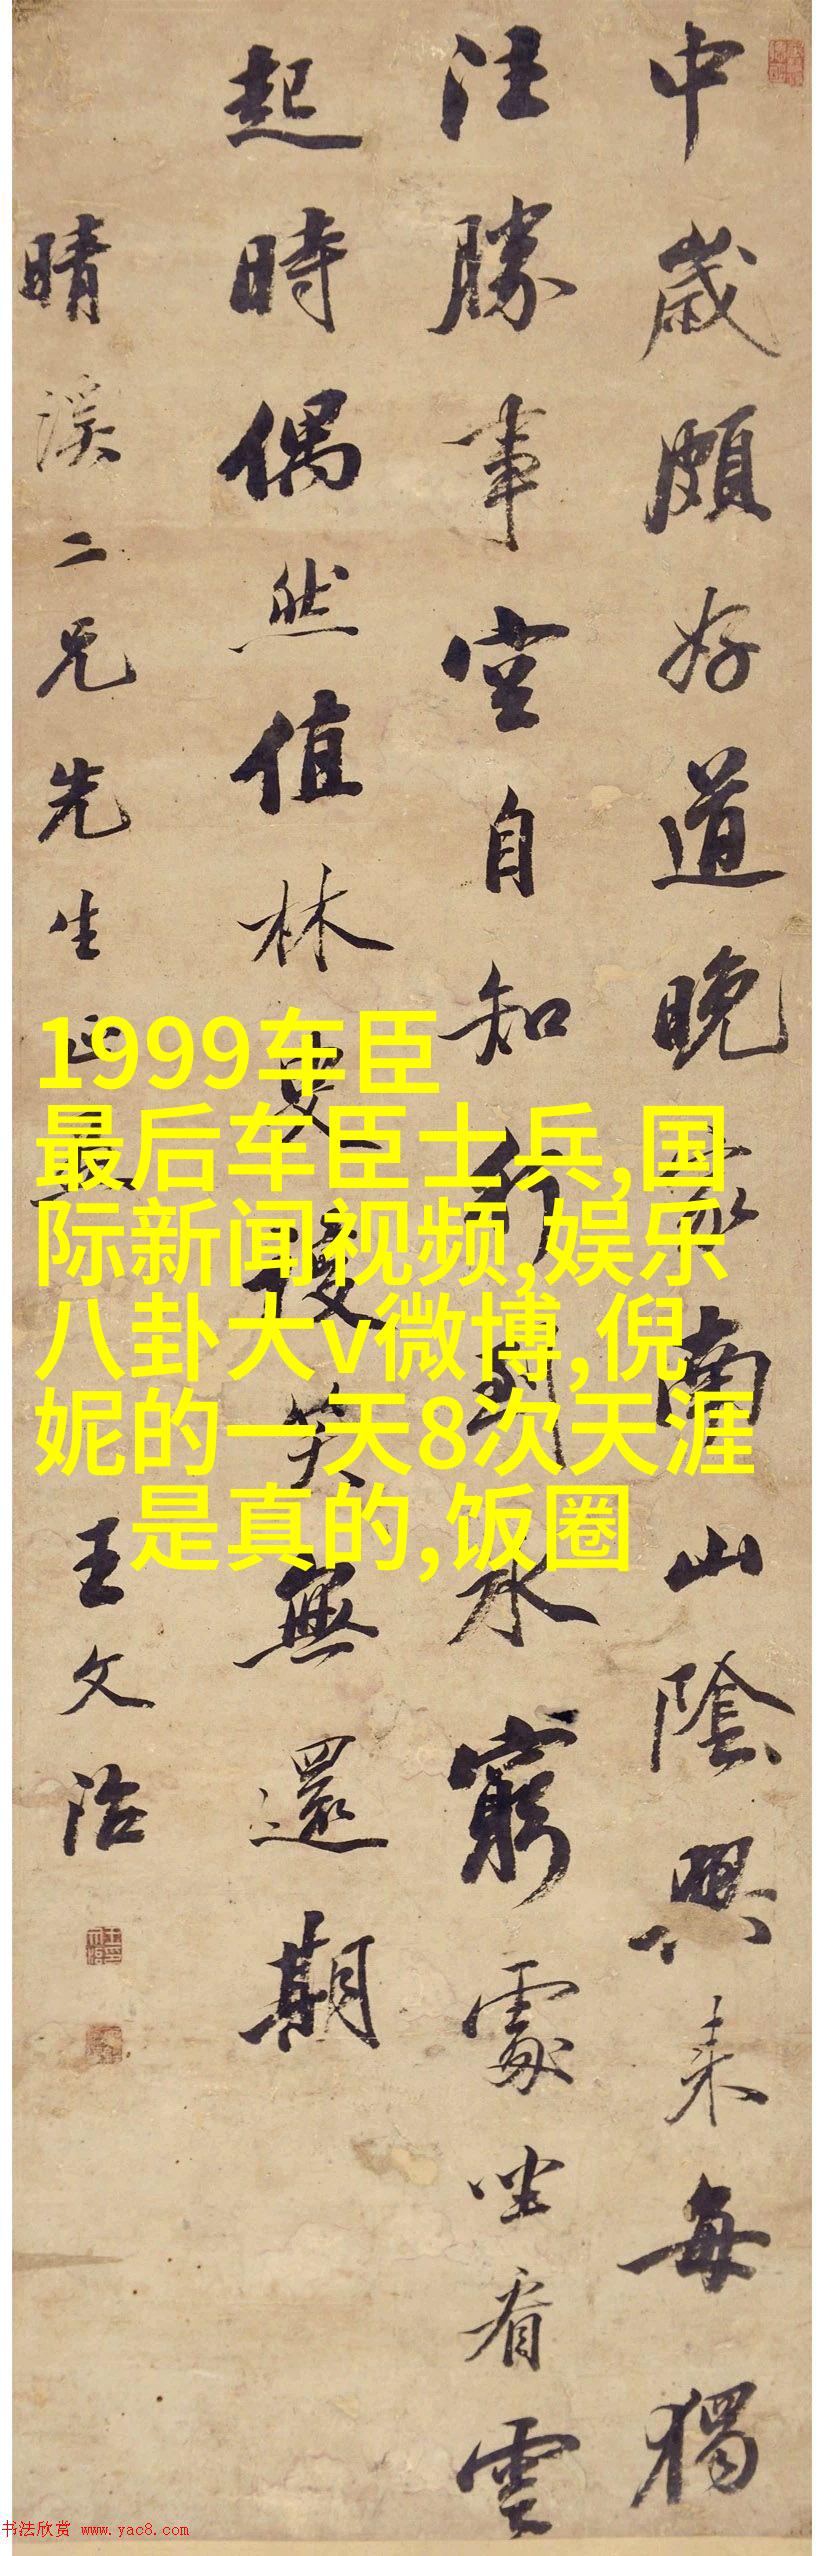 中歲頗好道晚家南山陰興来每獨
往勝事空自知行到水窮處坐看雲
起時偶然值林叟笑無還期
晴溪二兄先生正
王文治
1999车臣
最后车臣士兵,国
际新闻视频,娱乐
八卦大v微博,倪
妮的一天8次天涯
是真的,饭圈
书法欣赏 www.yac8.com